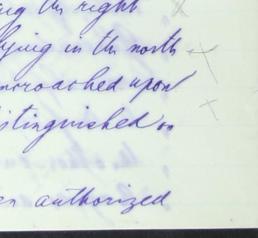 the right
lying in the north
encroached upon
distinguished or
authorized